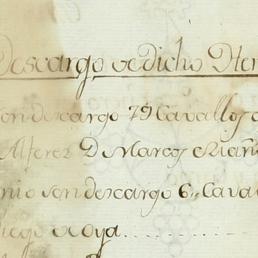 Descargo de dicho
son descargo 79 Cavallos
Alferez D Marcos
son descargo 6
Diego de oya